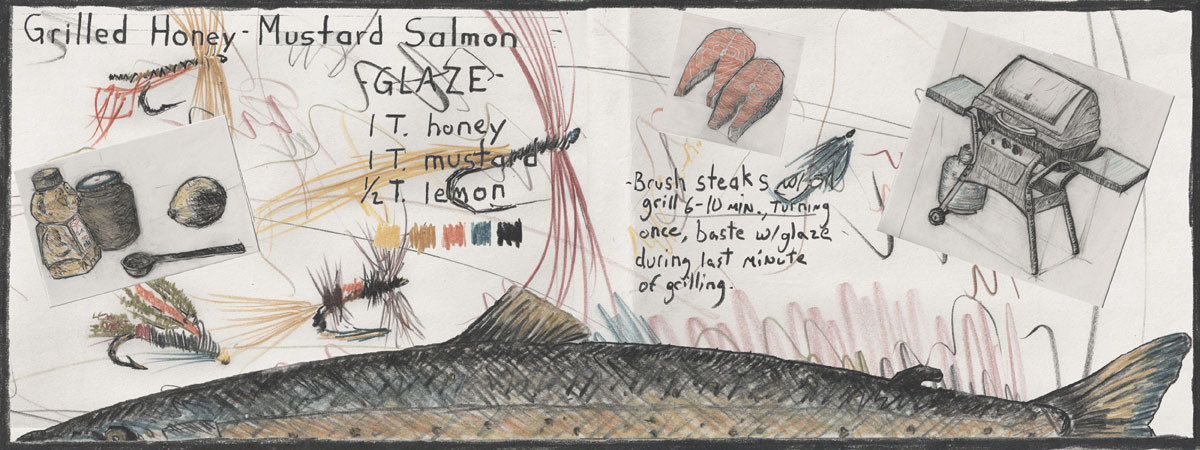 Grilled Honey-Mustard Salmon
GLAZE-
1 T. honey
1 T. mustard
½ T. lemon
-Brush steaks w/oil
grill 6-10 min., turning
once, baste w/glaze
during last minute
of grilling.